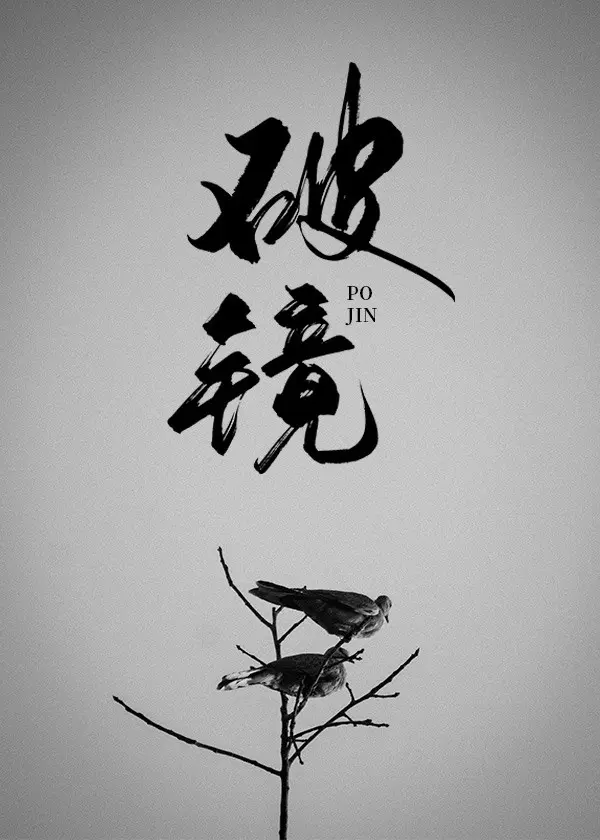 破
镜
PO
JIN